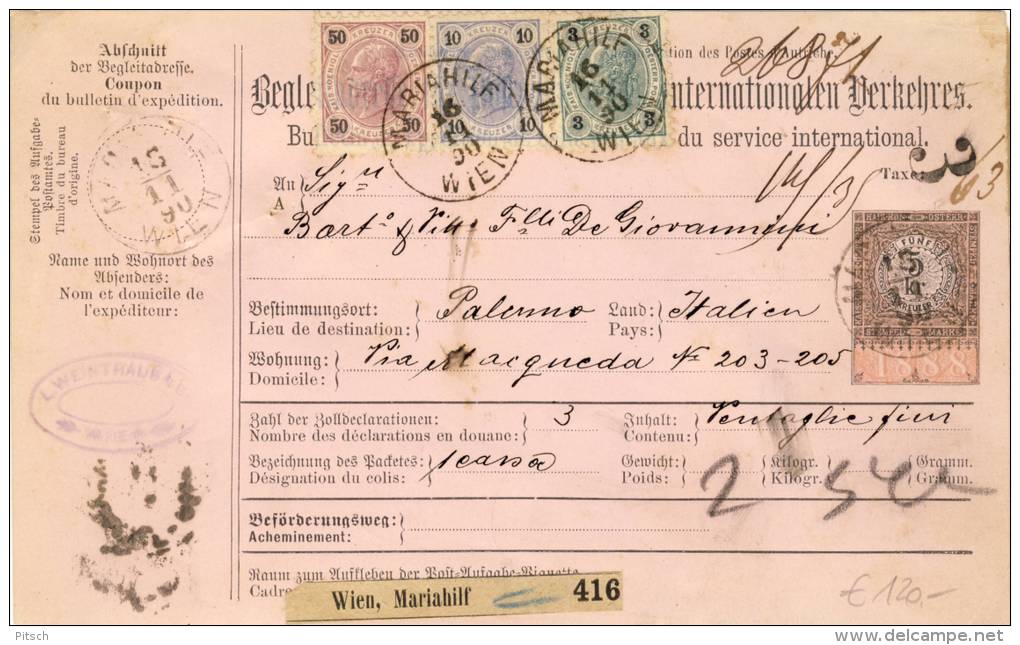 Abschnitt
der Begleitadresse.
Coupon
du bulletin d'expédition.
Stempel des Aufgabe-
Postamtes.
Timbre du bureau
d'origine.
15
11
90
WIEN
Name und Wohnort des
Absenders:
Nom et domicile de
l'expéditeur:
L. WEINTRAUB
WIEN
50 KREUZER 50
50 50
10 KREUZER 10
10 10
3 KREUZER 3
3 3
MARIAHILF
16
11
90
WIEN
MARIAHILF
16
11
90
WIEN
tion des Postes d'Autriche.
Begle internationalen Verkehres.
Bu du service international.
Taxe:
3
63
An
A
Sigri
Barto & Vitto Flli De Giovannini
Bestimmungsort: Palermo Land: Italien
Lieu de destination: Pays:
Wohnung: Via Macqueda No 203-205
Domicile:
FÜNF
5
kr
KREUZER
1888
Zahl der Zolldeclarationen: 3 Inhalt: Ventaglie fini
Nombre des déclarations en douane: Contenu:
Bezeichnung des Packetes: 1 cassa Gewicht: Kilogr. Gramm.
Désignation du colis: Poids: 2 Kilogr. 540 Gramm.
Beförderungsweg:
Acheminement:
Raum zum Aufkleben der Post-Aufgabe-Vignette
Cadre
Wien, Mariahilf 416
€ 120.-
Pitsch
delcampe.net